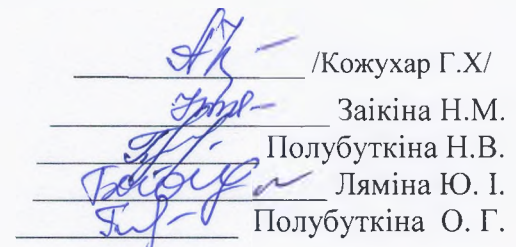 /Кожухар Г.Х/
Заікіна Н.М.
Полубуткіна Н.В.
Ляміна Ю. І.
Полубуткіна О. Г.